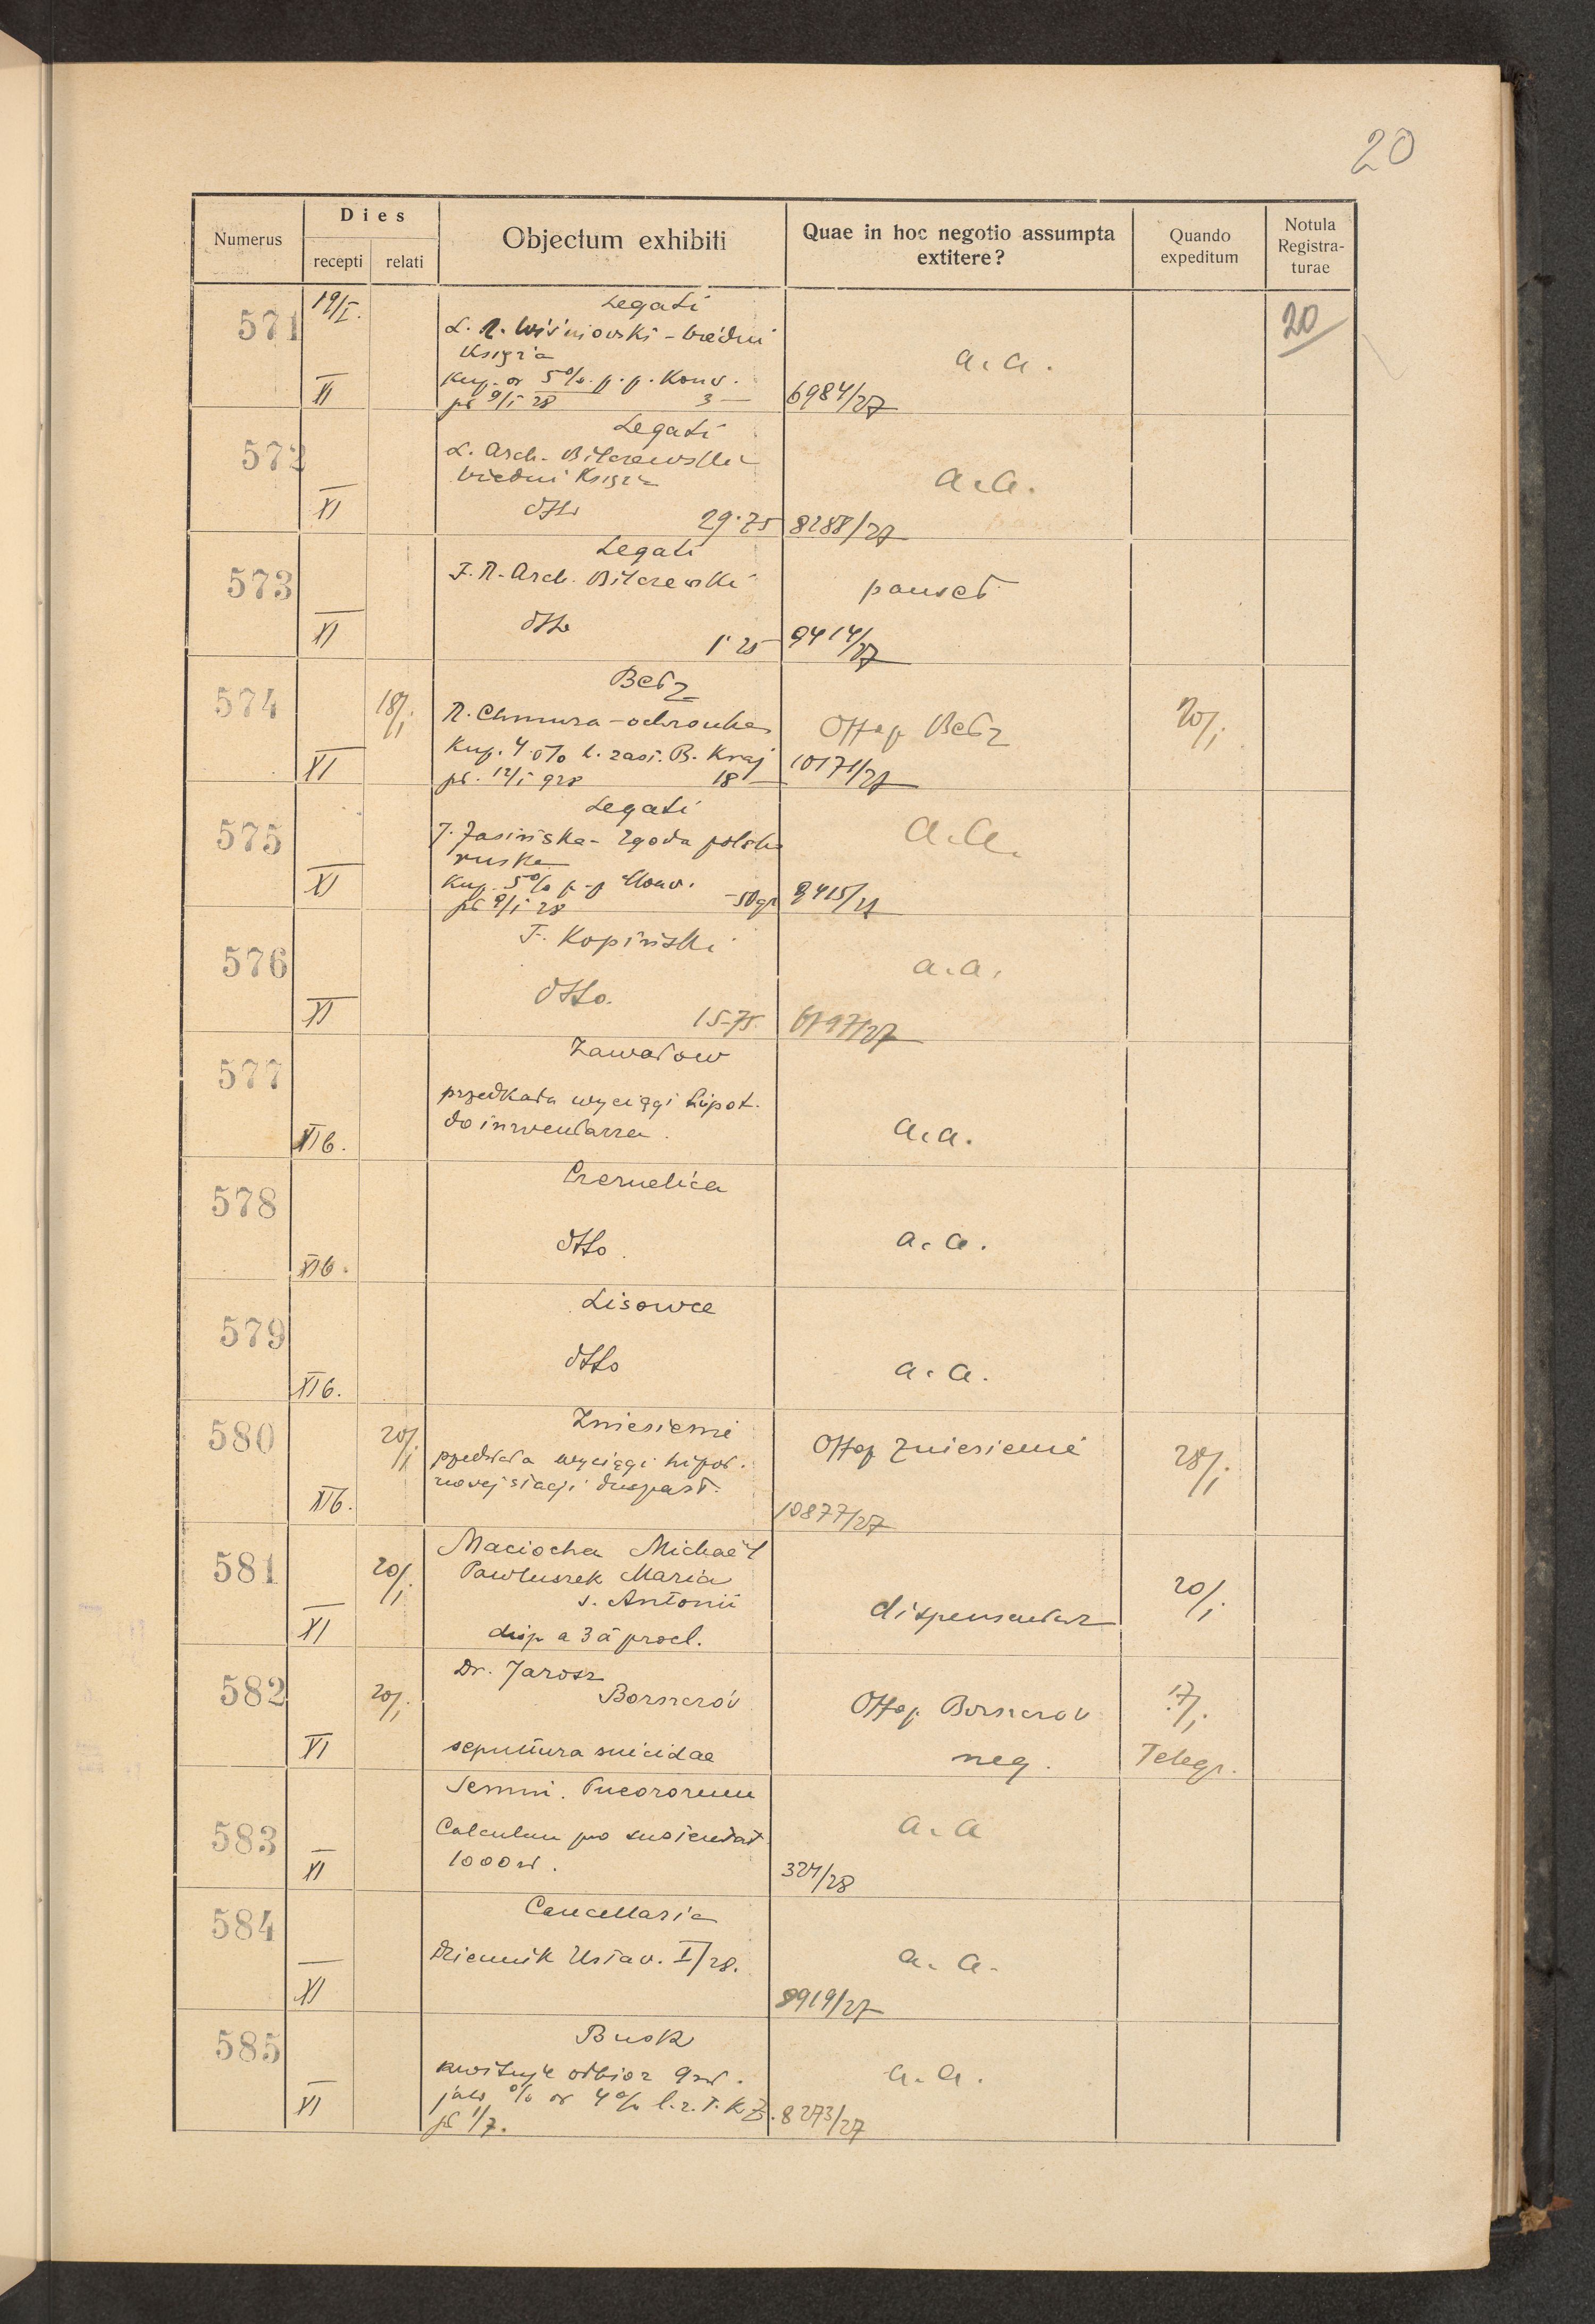 20
Numerus
Dies
recepti
relati
Objectum exhibiti
Quae in hoc negotio assumpta
extitere?
Quando
expeditum
Notula
Registra-
turae
571
19/I.
XI
Legati
L. R. Wiśniowski - biedni
księża
kup. od 5% p. p. Konw.
pł 9/I 28 3 —
a. a.
6984/27
20
572
XI
Legati
L. Arch. Bilczewski
biedni księża
dtto
29·75
a. a.
8288/27
573
XI
Legati
F. R. Arch. Bilczewski
dtto
1·25
9414/27
574
18/I
XI
Bełz
R. Chmura - ochronka
Kup. 4% l. zast. B. Kraj
pł. 12/I 928 18 —
Offop Bełz
10171/27
20/I
575
XI
Legati
J. Jasińska - Zgoda polsko
ruska
kup. 5% p. p. Konw.
pł 9/I 28 -50 gr
a. a.
9415/27
576
XI
F. Kopiński
dtto.
15-75
a. a.
577
XIb.
Zawałow
przedkłada wyciągi hipot.
do inwentarza.
a. a.
578
XIb.
Czernelica
dtto.
a. a.
579
XIb.
Lisowce
dtto
a. a.
580
20/I
XIb.
Zniesienie
przedkłada wyciągi hipot.
nowej stacji duszpast.
Offop Zniesienie
10877/27
28/I
581
20/I
XI
Maciocha Michaël
Pawluszek Maria
s. Antonii
disp a 3â procl.
dispensatur
20/I
582
20/I
XI
Dr. Jarosz
Borszczów
sepultura suicidae
Offop Borszczów
neg.
17/I.
Telegr.
583
XI
Semin. Puerorum
Calculum pro
1000 zł.
a. a
324/28
584
XI
Cancellaria
Dziennik Ustaw. I/28.
a. a.
8919/27
585
XI
Busk
kwituje odbiór 9 zł.
jako % od 4% l. z. T. K Z.
pł 1/7.
a. a.
8273/27